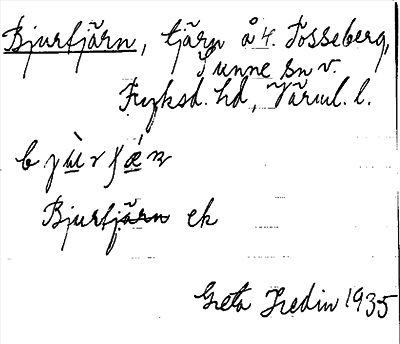 Bjurtjärn, tjärn å 4. Tosseberg,
Sunne sn v.
Fryksd. hd, Värml. l.
bjùrʃǽn
Bjurtjärn ek
Greta Hedin 1935